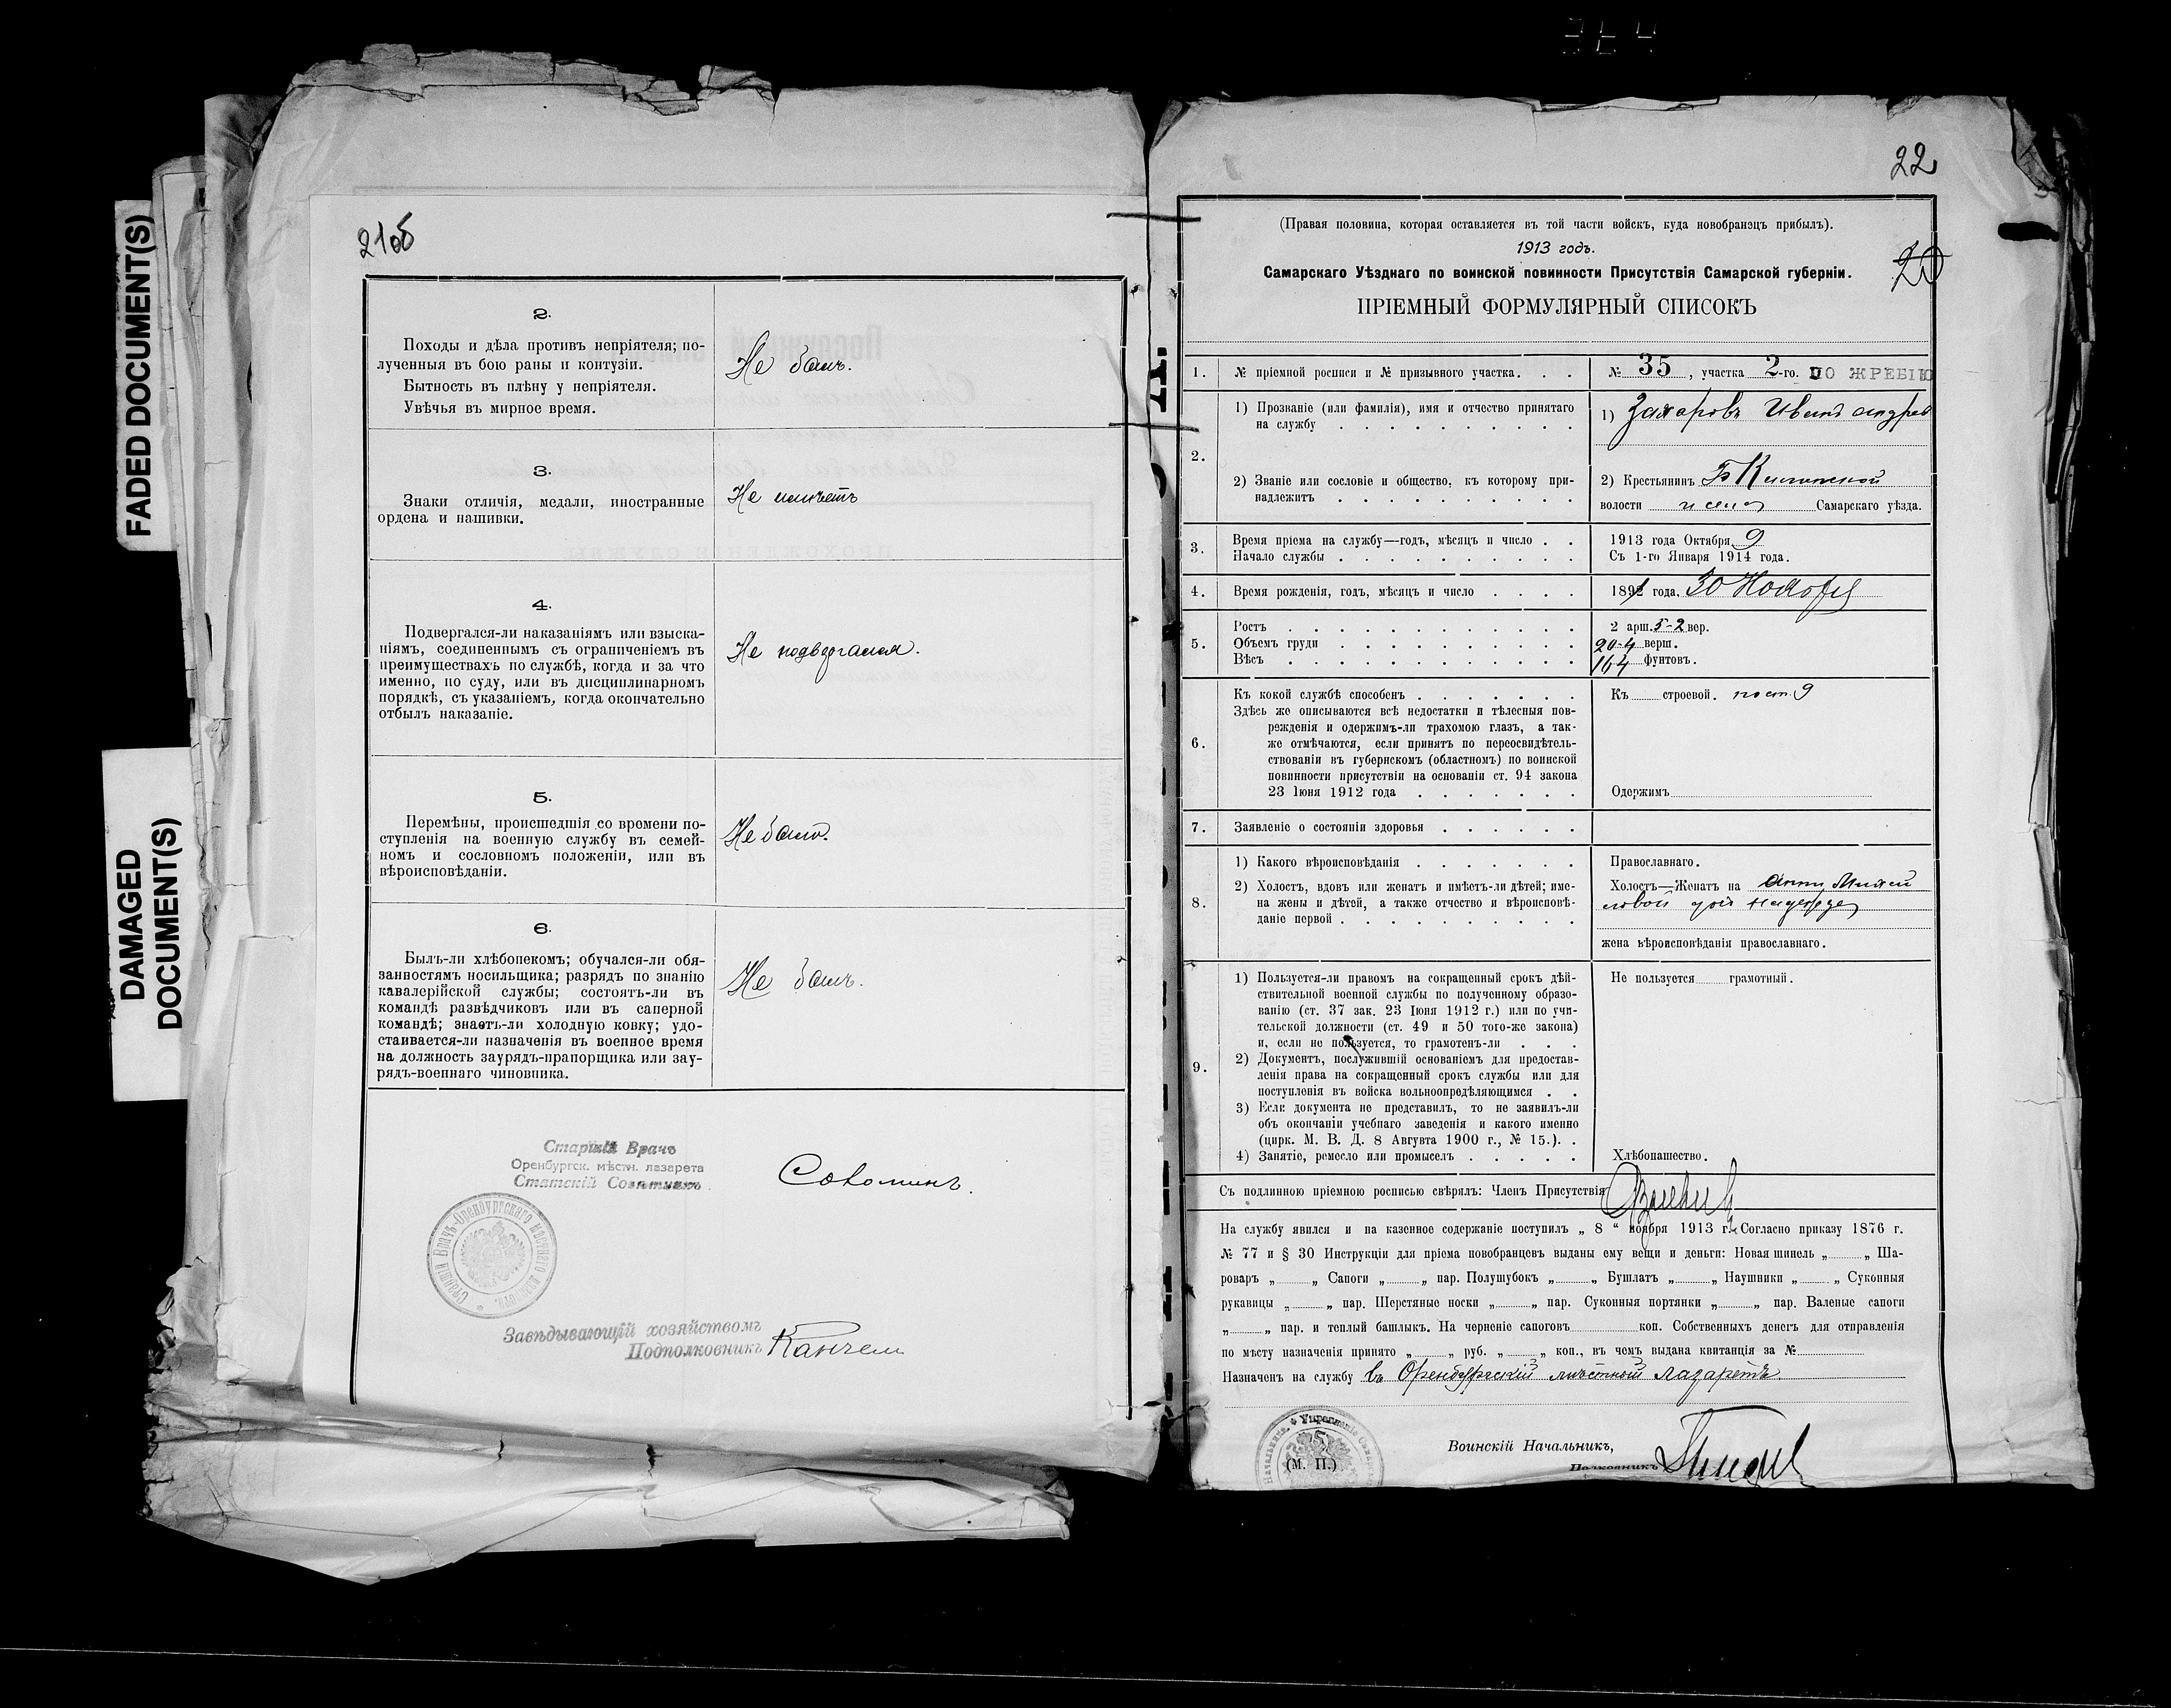 FADED DOCUMENT(S)
DAMAGED
DOCUMENT(S)
21об
2.
Походы и дѣла противъ непріятеля; по-
лученныя въ бою раны и контузіи.
Бытность въ плѣну у непріятеля.
Увѣчья въ мирное время.
Не былъ.
3.
Знаки отличія, медали, иностранные
ордена и нашивки.
Не имѣетъ
4.
Подвергался-ли наказаніямъ или взыска-
ніямъ, соединеннымъ съ ограниченіемъ въ
преимуществахъ по службѣ, когда и за что
именно, по суду, или въ дисциплинарномъ
порядкѣ, съ указаніемъ, когда окончательно
отбылъ наказаніе.
Не подвергался.
5.
Перемѣны, происшедшія со времени по-
ступленія на военную службу въ семей-
номъ и сословномъ положеніи, или въ
вѣроисповѣданіи.
Не было.
6.
Былъ-ли хлѣбопекомъ; обучался-ли обя-
занностямъ носильщика; разрядъ по знанію
кавалерійской службы; состоятъ-ли въ
командѣ развѣдчиковъ или въ саперной
командѣ; знаетъ-ли холодную ковку; удо-
стаивается-ли назначенія въ военное время
на должность заурядъ-прапорщика или зау-
рядъ-военнаго чиновника.
Не былъ.
Старшій Врачъ
Оренбургск. мѣстн. лазарета
Статскій Совѣтникъ
Завѣдывающій хозяйствомъ
Подполковникъ
22
20
(Правая половина, которая оставляется въ той части войскъ, куда новобранецъ прибылъ).
1913 годъ.
Самарскаго Уѣзднаго по воинской повинности Присутствія Самарской губерніи.
ПРІЕМНЫЙ ФОРМУЛЯРНЫЙ СПИСОКЪ
1. № пріемной росписи и № призывного участка. . . № 35, участка 2-го. ПО ЖРЕБІЮ
2. 1) Прозваніе (или фамилія), имя и отчество принятаго
на службу . . . . . . . . . .
1) Захаровъ Иванъ Андрев
2) Званіе или сословіе и общество, къ которому при-
надлежитъ . . . . . . . . . .
2) Крестьянинъ Б
волости и села Самарскаго уѣзда.
3. Время пріема на службу—годъ, мѣсяцъ и число . . 1913 года Октября 9
Начало службы . . . . . . . . . Съ 1-го Января 1914 года.
4. Время рожденія, годъ, мѣсяцъ и число . . . . 1891 года. 30 Ноября
5. Ростъ . . . . . . . . . . . 2 арш. 5-2 вер.
Объемъ груди . . . . . . . . . . 20-4 верш.
Вѣсъ . . . . . . . . . . . 164 фунтовъ.
6. Къ кокой службѣ способенъ . . . . . . . Къ строевой.
Здѣсь же описываются всѣ недостатки и тѣлесныя пов-
режденія и одержимъ-ли трахомою глазъ, а так-
же отмѣчаются, если принятъ по переосвидѣтель-
ствованіи въ губернскомъ (областномъ) по воинской
повинности присутствіи на основаніи ст. 94 закона
23 Іюня 1912 года . . . . . . . Одержимъ
7. Заявленіе о состояніи здоровья . . . . . .
8. 1) Какого вѣроисповѣданія . . . . . . . Православнаго.
2) Холостъ, вдовъ или женатъ и имѣетъ-ли дѣтей; име-
на жены и дѣтей, а также отчество и вѣроисповѣ-
даніе первой . . . . . . . . . .
Холостъ—Женатъ на Анни Михай
ловой
жена вѣроисповѣданія православнаго.
9. 1) Пользуется-ли правомъ на сокращенный срокъ дѣй-
ствительной военной службы по полученному образо-
ванію (ст. 37 зак. 23 Іюня 1912 г.) или по учи-
тельской должности (ст. 49 и 50 того-же закона)
и, если не пользуется, то грамотенъ-ли . . .
Не пользуется грамотный.
2) Документъ, послужившій основаніемъ для предостав-
ленія права на сокращенный срокъ службы или для
поступленія въ войска вольноопредѣляющимся . .
3) Если документа не представилъ, то не заявилъ-ли
объ окончаніи учебнаго заведенія и какого именно
(цирк. М. В. Д. 8 Августа 1900 г., № 15.). .
4) Занятіе, ремесло или промыселъ . . . . . Хлѣбопашество.
Съ подлинною пріемною росписью свѣрялъ: Членъ Присутствія
На службу явился и на казенное содержаніе поступилъ „ 8 “ ноября 1913 г. Согласно приказу 1876 г.
№ 77 и § 30 Инструкціи для пріема новобранцевъ выданы ему вещи и деньги: Новая шинель „ „ Ша-
роваръ „ „ Сапоги „ „ пар. Полушубокъ „ „ Бушлатъ „ „ Наушники „ „ Суконныя
рукавицы „ „ пар. Шерстяные носки „ „ пар. Суконныя портянки „ „ пар. Валеные сапоги
„ „ пар. и теплый башлыкъ. На черненіе сапоговъ коп. Собственныхъ денегъ для отправленія
по мѣсту назначенія принято „ „ руб. „ „ коп., въ чемъ выдана квитанція за №
Назначенъ на службу въ Оренбургскій мѣстный лазаретъ
(М. П.)
Воинскій Начальникъ,
Полковникъ